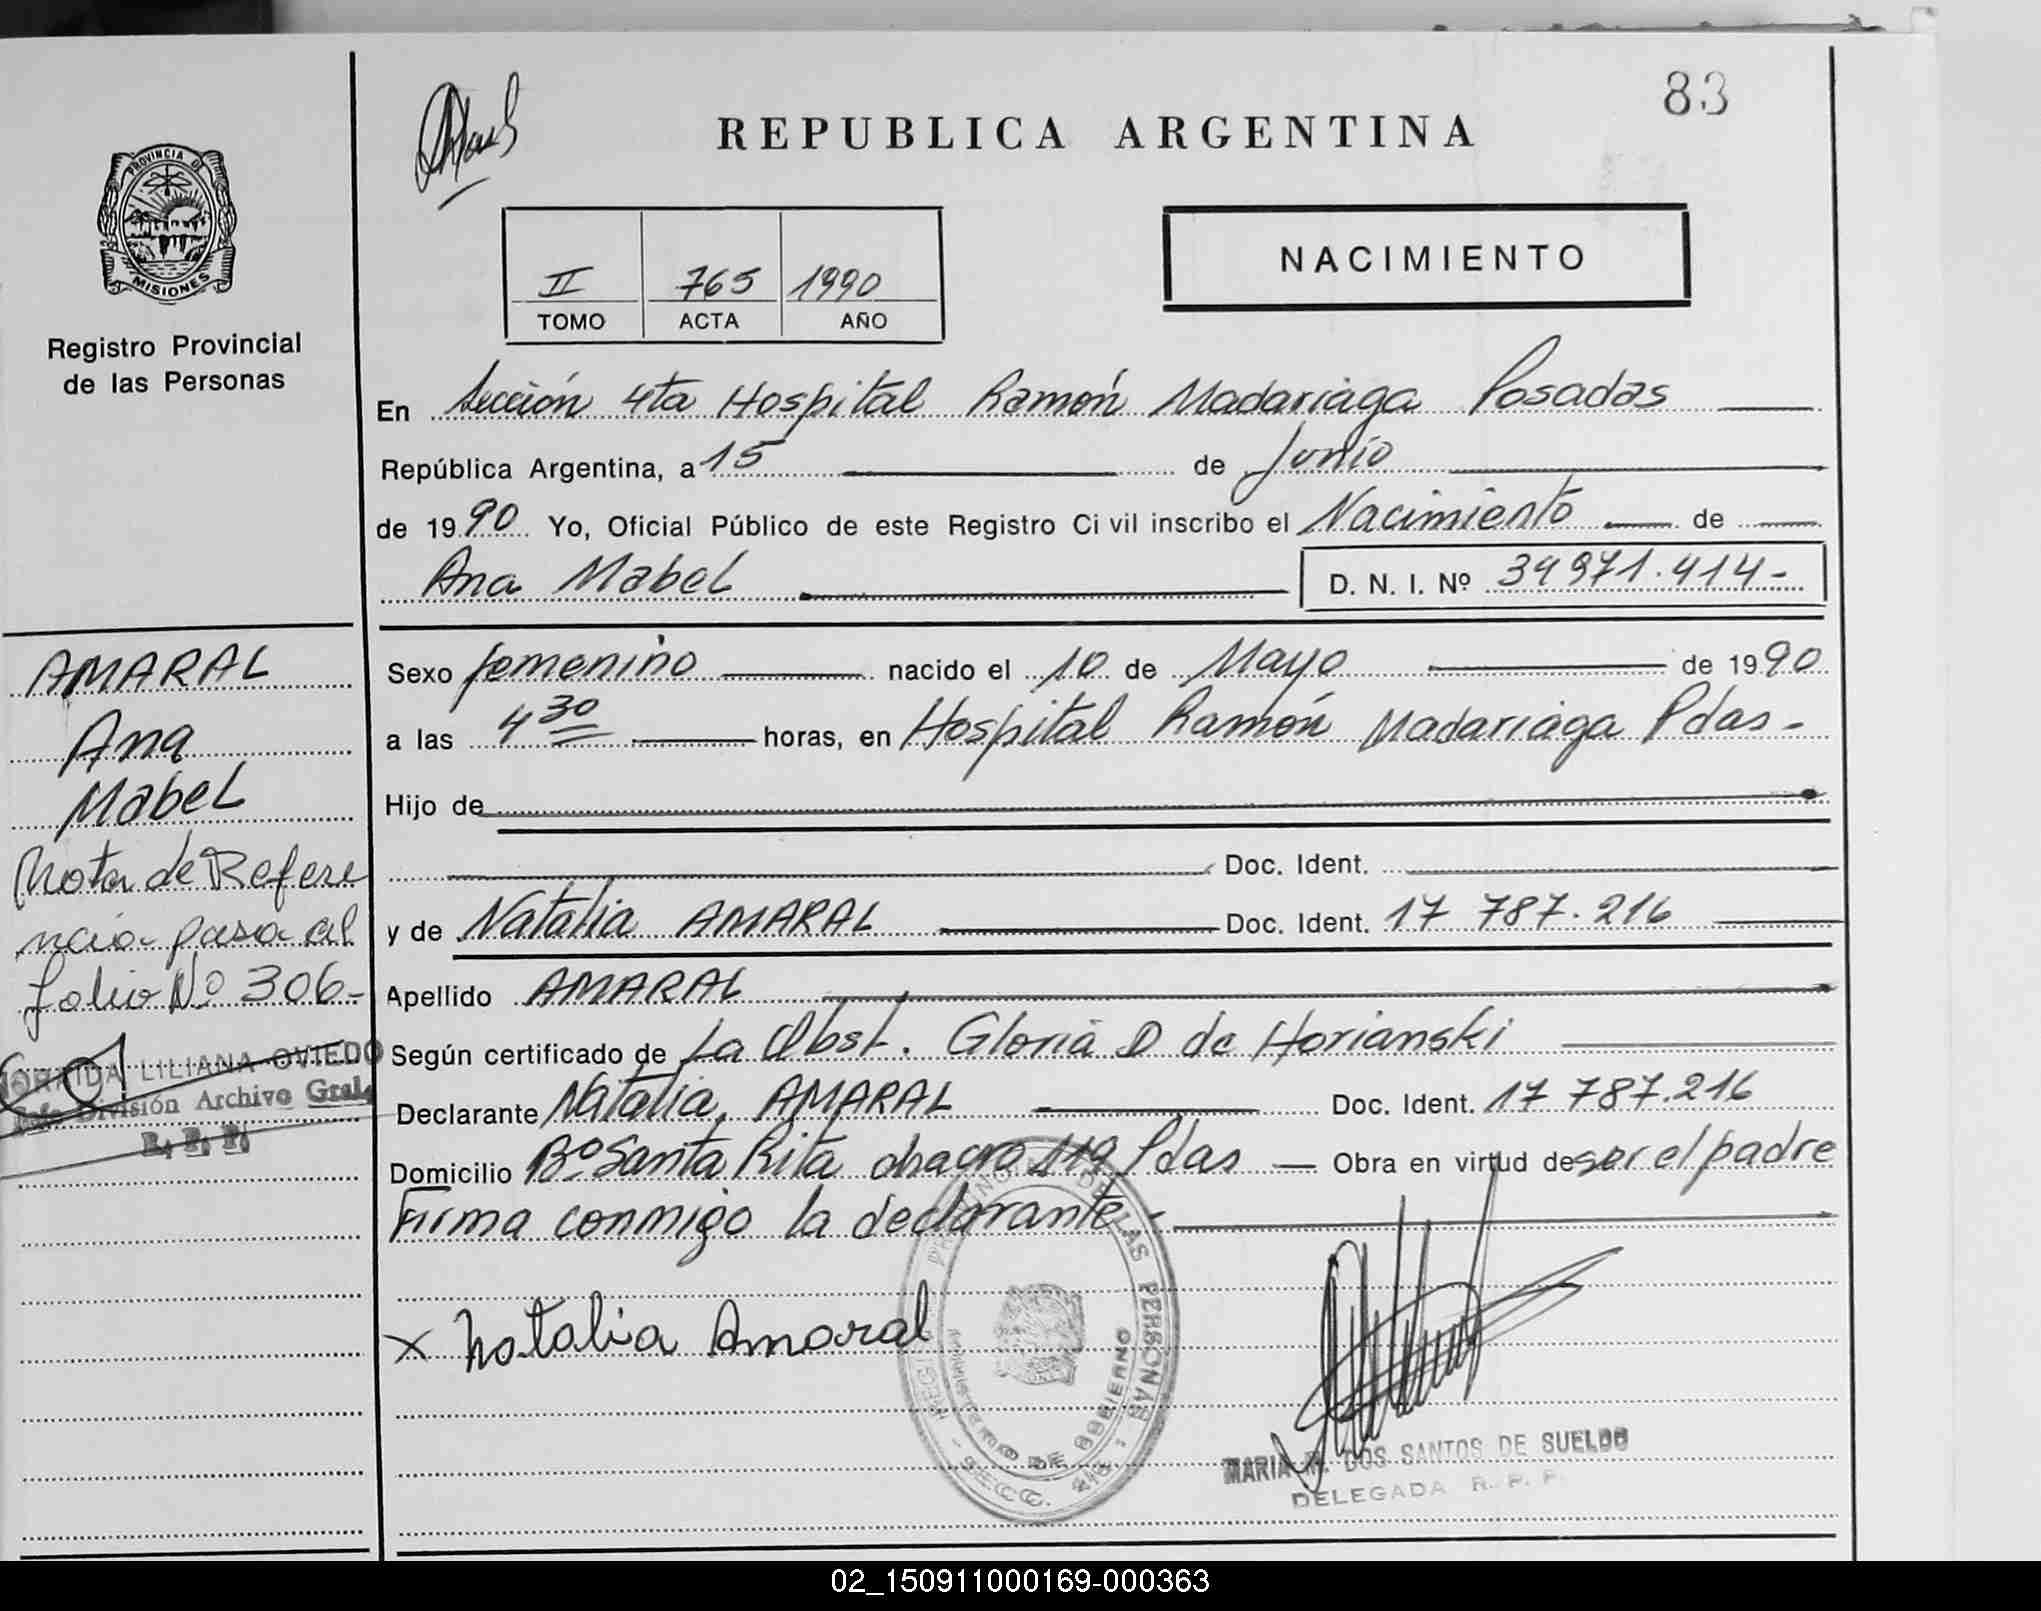 83
REPUBLICA ARGENTINA
PROVINCIA DE
MISIONES
Registro Provincial
de las Personas
NACIMIENTO
II 765 1990
TOMO ACTA AÑO
En Sección 4ta Hospital Ramón Madariaga Posadas
República Argentina, a 15 de Junio
de 1990 Yo, Oficial Público de este Registro Civil inscribo el Nacimiento de
Ana Mabel D. N. I. Nº 34971.414-
AMARAL
Ana
Mabel
Nota de Refere
ncia pasa al
folio Nº 306-
LILIANA OVIEDO
Jefe División Archivo Gral.
R. P. P.
Sexo femenino nacido el 10 de Mayo de 1990
a las 4 30 horas, en Hospital Ramón Madariaga Pdas-
Hijo de
Doc. Ident.
y de Natalia AMARAL Doc. Ident. 17 787.216
Apellido AMARAL
Según certificado de La Obst. Gloria D de Horianski
Declarante Natalia, AMARAL Doc. Ident. 17 787.216
Domicilio Bº Santa Rita chacra 119 Pdas Obra en virtud de ser el padre
Firma conmigo la declarante-
x Natalia Amaral
DE LAS PERSONAS
MINISTERIO DE GOBIERNO
SECC. 4
MARIA M. DOS SANTOS DE SUELDO
DELEGADA R. P. P.
02_150911000169-000363